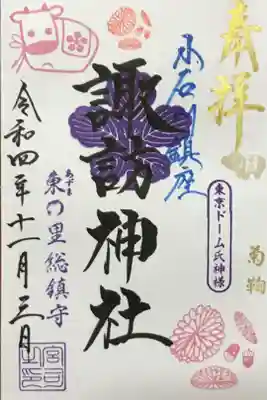 奉拝
菊
東京ドーム氏神様
小石川鎮座
諏訪神社
あずま
東の里総鎮守
令和四年十一月三日